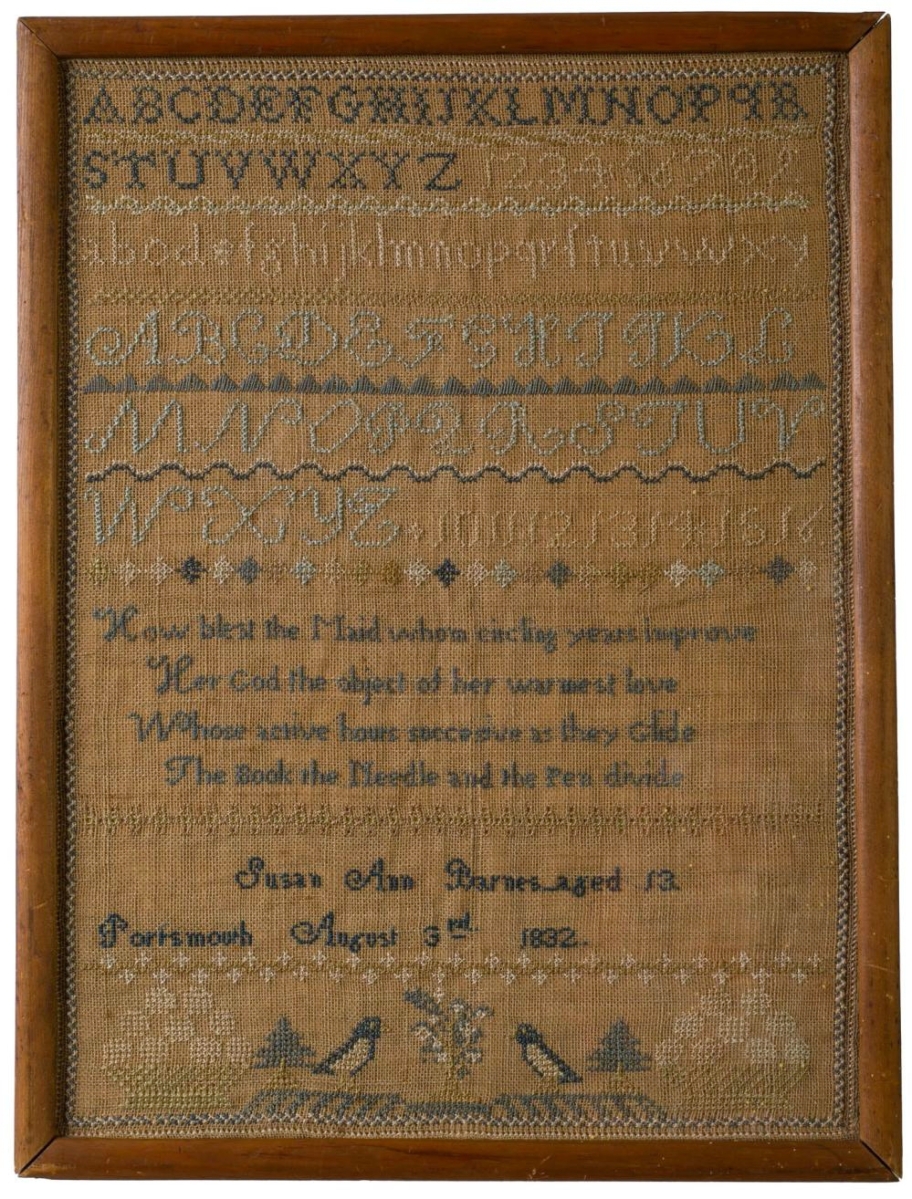 ABCDEFGHIJKLMNOPQR
STUVWXYZ 12345678
abcdefghijklmnopqrſtuvwxy
ABCDEFGHIJKL
MNOPQRSTUV
WXYZ 10 11 12 13 14 15 16
How blest the Maid whom circling years improve
Her God the object of her warmest love
Whose active hours succesive as they Glide
The Book the Needle and the Pen divide
Susan Ann Barnes aged 13
Portsmouth August 3rd 1832.